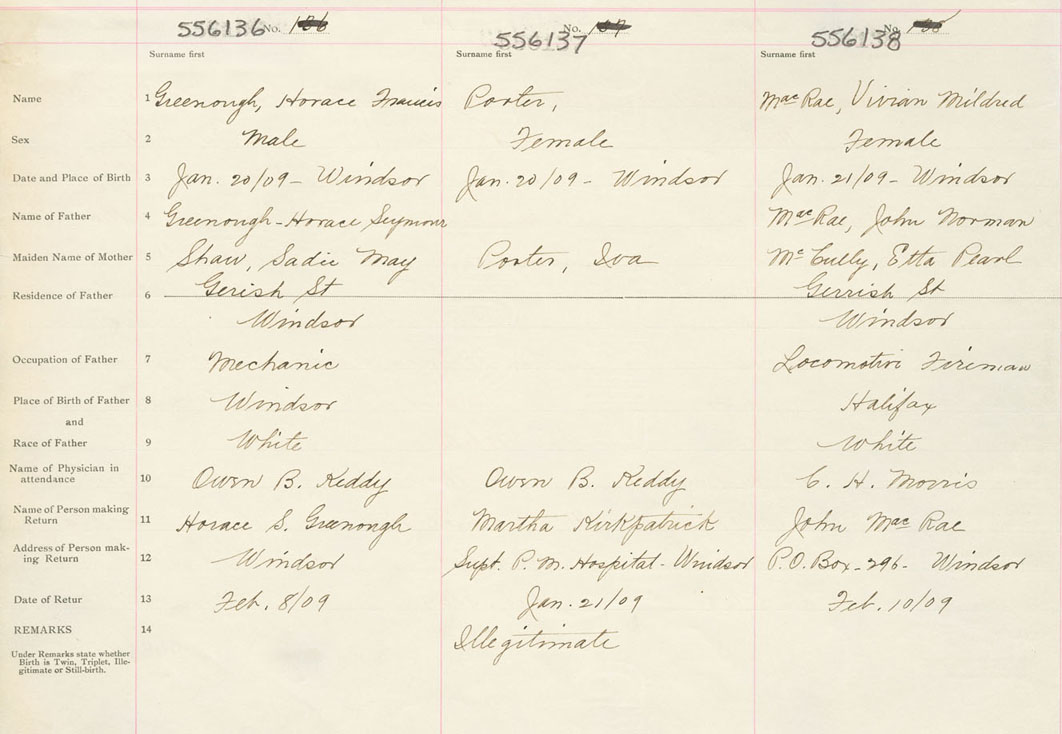 556136 No. 136 556137 No. 137 556138 No.
Surname first Surname first Surname first
Name 1 Greenough, Horace Francis Porter, MacRae, Vivian Mildred
Sex 2 Male Female Female
Date and Place of Birth 3 Jan. 20/09 - Windsor Jan. 20/09 - Windsor Jan. 21/09 - Windsor
Name of Father 4 Greenough - Horace Seymour MacRae, John Norman
Maiden Name of Mother 5 Shaw, Sadie May Porter, Iva McCully, Etta Pearl
Residence of Father 6 Gerish St Gerrish St
Windsor Windsor
Occupation of Father 7 Mechanic Locomotive Fireman
Place of Birth of Father 8 Windsor Halifax
and
Race of Father 9 White White
Name of Physician in
attendance 10 Owen B. Keddy Owen B. Keddy C. H. Morris
Name of Person making
Return 11 Horace S. Greenough Martha Kirkpatrick John MacRae
Address of Person mak-
ing Return 12 Windsor Supt. P. M. Hospital - Windsor P.O. Box - 296 - Windsor
Date of Retur 13 Feb. 8/09 Jan. 21/09 Feb. 10/09
REMARKS 14 Illegitimate
Under Remarks state whether
Birth is Twin, Triplet, Ille-
gitimate or Still-birth.